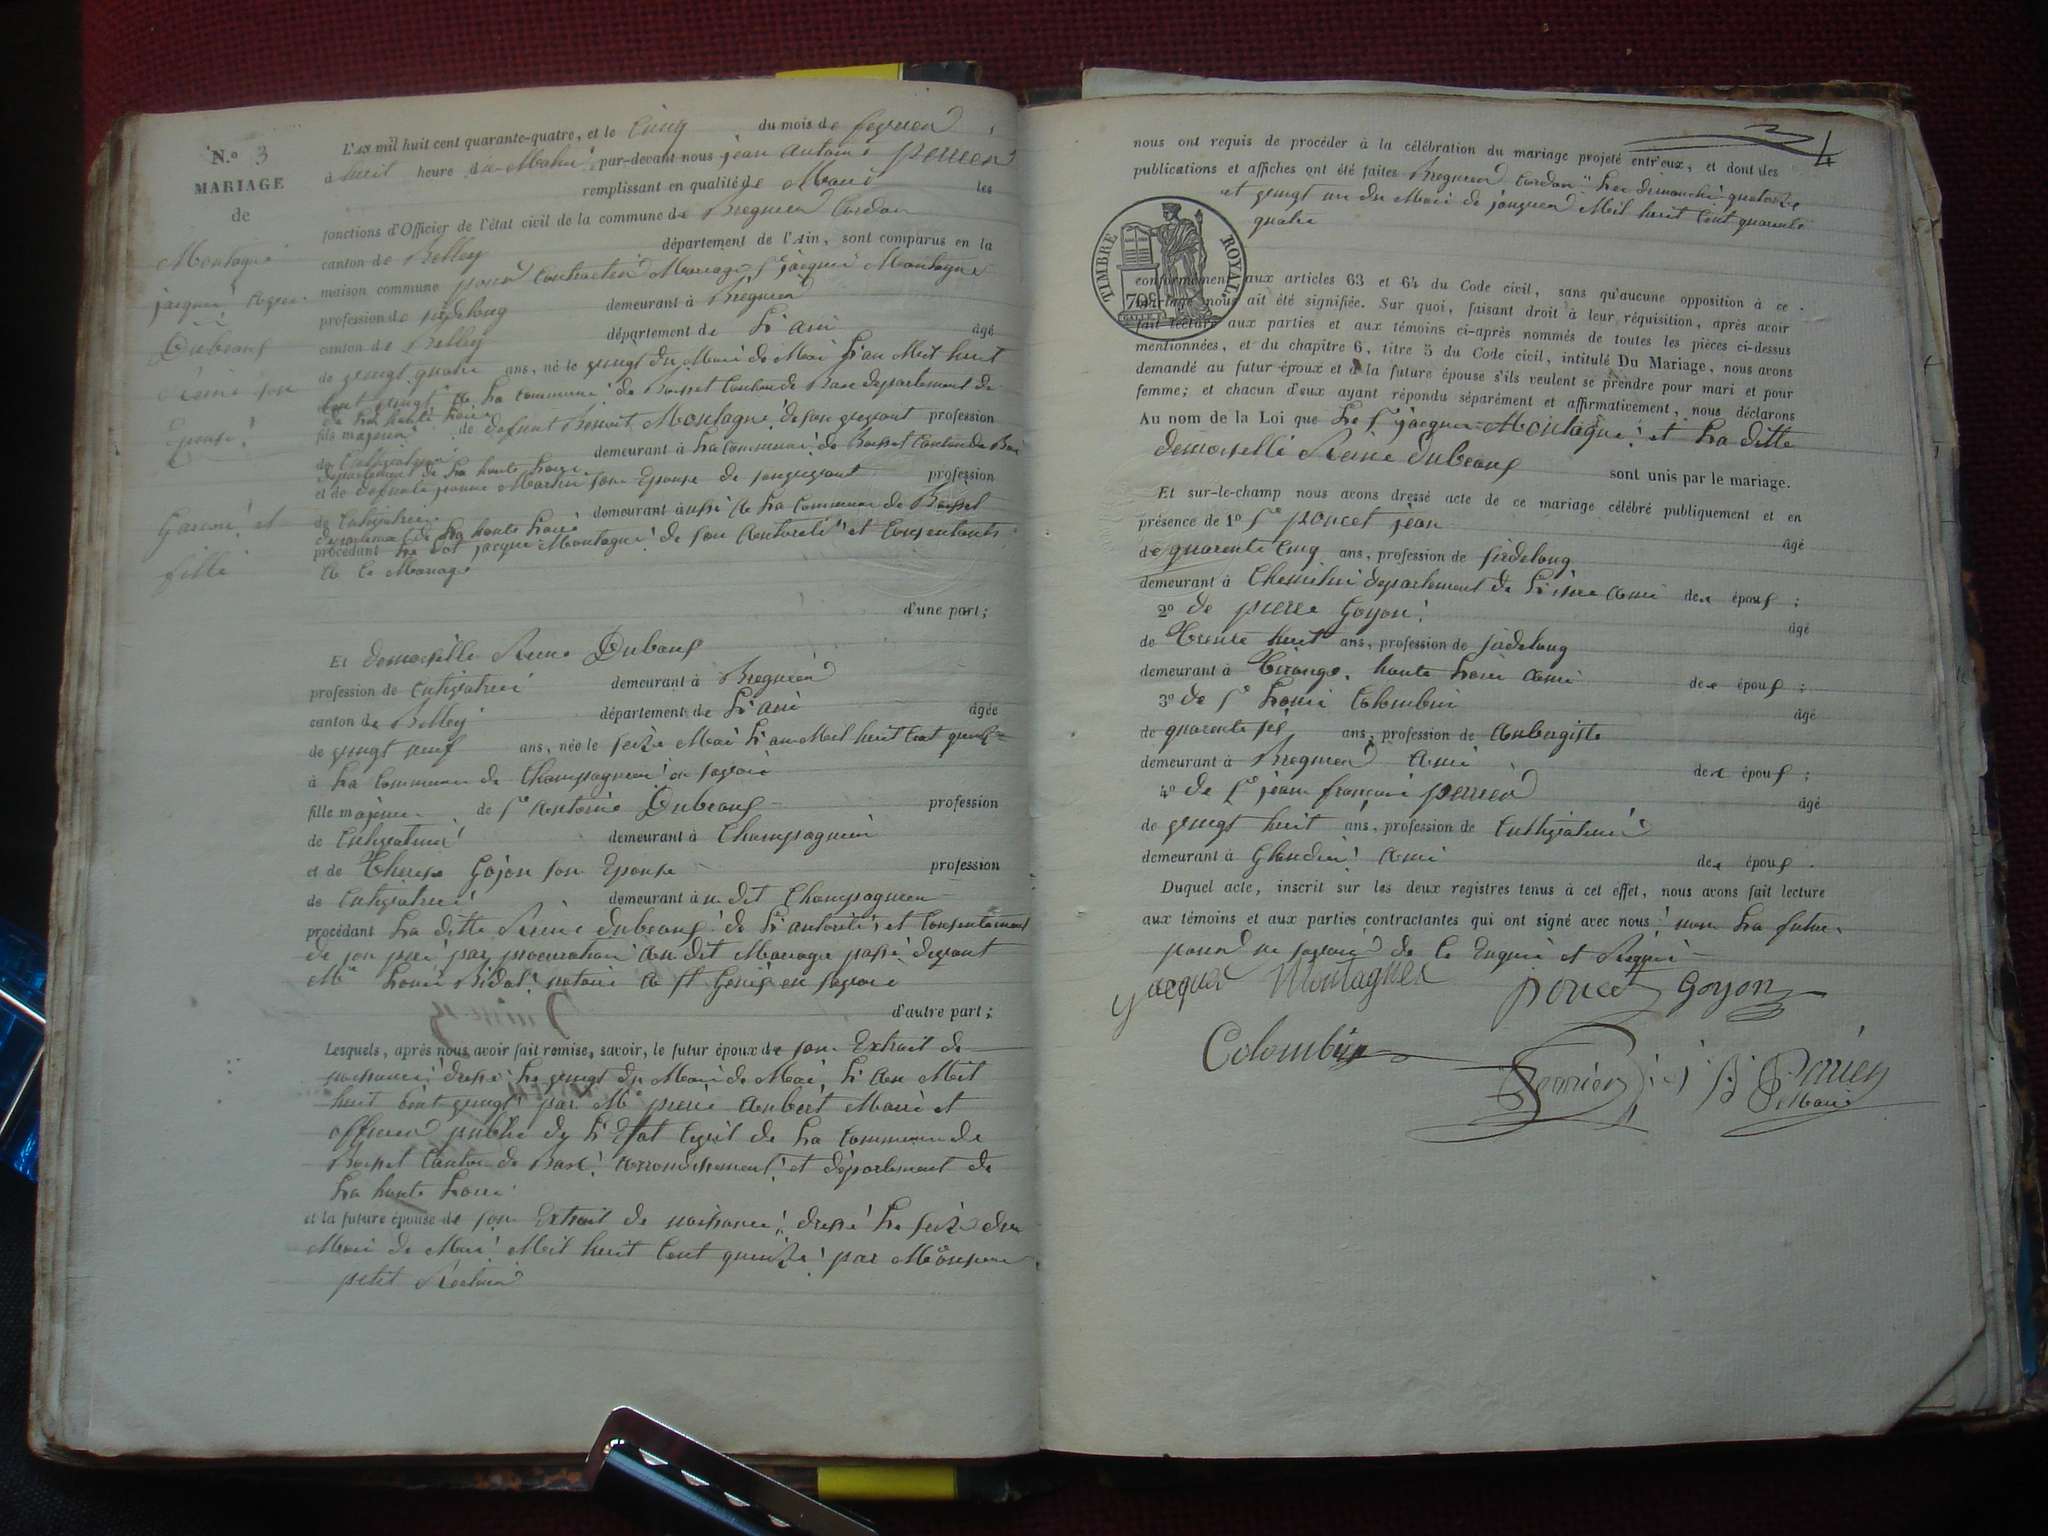 N.o 3
MARIAGE
de
Montagne
jacque
Dubeouf
Reine son
Epouse
Garcon et
fille
L'AN mil huit cent quarante-quatre, et le Cinq du mois de fevrier
à huit heure du Matin par-devant nous jean antoine perrier
remplissant en qualité de Maire les
fonctions d'Officier de l'état civil de la commune de Bregnier Cordon
canton de Belley département de l'Ain, sont comparus en la
maison commune pour Contracter Mariage Sr jacque Montagne
profession de sirdelong demeurant à Bregnier
canton de Belley département de L'ain âgé
de vingt quatre ans, né le vingt du Mois de Mai L'an Mil huit
Cent vingt a La Commune de Boisset Canton de Bas departement de
La haute Loire
fils majeur de defunt Benoit Montagne de son vivant profession
de Cultivateur demeurant à La Commune de Boisset Canton de Bas
departement de La haute Loire
et de defunte jeanne Martin son Epouse de son vivant profession
de Cultivatrice demeurant aussi a La Commune de Boisset
departement de La haute Loire
procédant Le dit jacque Montagne de son Autorité et Consentants
a Ce Mariage
d'une part;
Et demoiselle Reine Dubeouf
profession de Cultivatrice demeurant à Bregnier
canton de Belley département de L'ain âgée
de vingt neuf ans, née le seize Mai L'an Mil huit Cent quinze
à La Commune de Champagneux en savoie
fille majeure de Sr Antoine Dubeouf profession
de Cultivateur demeurant à Champagneux
et de Therese Gojon son Epouse profession
de Cultivatrice demeurant à u dit Champagneux
procédant La ditte Reine dubeouf de L'autorité et Consentement
de son pere par procuration au dit Mariage passé devant
Me Louis Bidal notaire a St Genis en savoie
d'autre part;
Lesquels, après nous avoir fait remise, savoir, le futur époux de son Extrait de
naissance dressé Le vingt du Mois de Mai L'an Mil
huit Cent vingt par Mr pierre Aubert Maire et
officier public de L'Etat Civil de La Commune de
Boisset Canton de Bas arrondissement et département de
La haute Loire
et la future épouse de son Extrait de naissance dressé Le seize du
Mois de Mai Mil huit Cent quinze par Monsieur
petit Recteur
4
nous ont requis de procéder à la célébration du mariage projeté entr'eux, et dont les
publications et affiches ont été faites Bregnier Cordon Les dimanche quatorze
et vingt un du Mois de janvier Mil huit Cent quarante
quatre
TIMBRE ROYAL
70c
conformément aux articles 63 et 64 du Code civil, sans qu'aucune opposition à ce
mariage nous ait été signifiée. Sur quoi, faisant droit à leur réquisition, après avoir
fait lecture aux parties et aux témoins ci-après nommés de toutes les pièces ci-dessus
mentionnées, et du chapitre 6, titre 5 du Code civil, intitulé Du Mariage, nous avons
demandé au futur époux et à la future épouse s'ils veulent se prendre pour mari et pour
femme; et chacun d'eux ayant répondu séparément et affirmativement, nous déclarons
Au nom de la Loi que Le Sr jacque Montagne et La ditte
demoiselle Reine dubeouf sont unis par le mariage.
Et sur-le-champ nous avons dressé acte de ce mariage célébré publiquement et en
présence de 1o Sr poncet jean âgé
de quarente Cinq ans, profession de sirdelong
demeurant à departement de L'isere ami de l' époux ;
2o de pierre Goyon âgé
de Trente huit ans, profession de sirdelong
demeurant à Tirange, haute Loire ami de l' époux ;
3o de Sr Louis Colombin âgé
de quarente six ans, profession de Aubergiste
demeurant à Bregnier ami de l' époux ;
4o de Sr jean françois perrier âgé
de vingt huit ans, profession de Cultivateur
demeurant à Glandieu ami de l' époux .
Duquel acte, inscrit sur les deux registres tenus à cet effet, nous avons fait lecture
aux témoins et aux parties contractantes qui ont signé avec nous non La future
pour ne savoir de Ce Enquis et Requis
Jacques Montagnes poncet Goyon
Colombin
Perrier Perrier
Maire